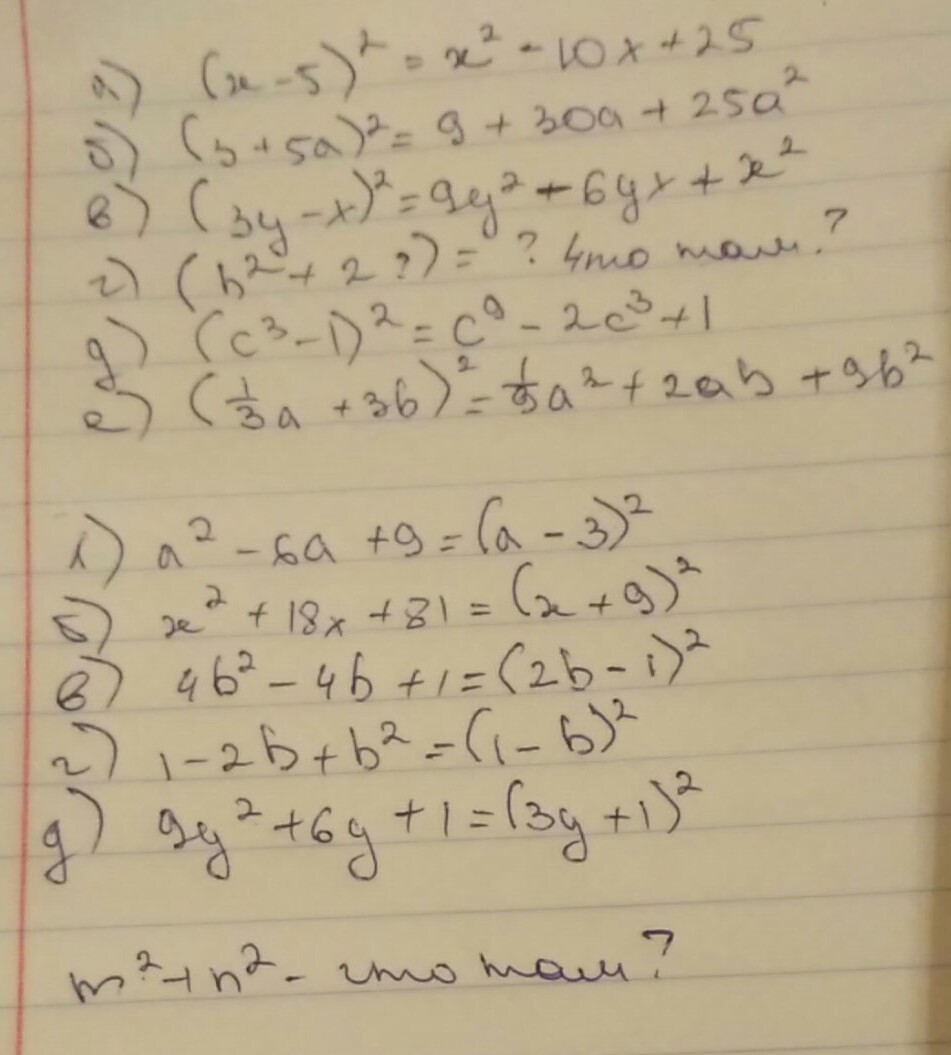 а) (x - 5)² = x² - 10x + 25
б) (3 + 5a)² = 9 + 30a + 25a²
в) (3y - x)² = 9y² - 6yx + x²
г) (b² + 2 ?) = ? Что там?
д) (c³ - 1)² = c⁹ - 2c³ + 1
е) (1/3a + 3b)² = 1/9a² + 2ab + 9b²
а) a² - 6a + 9 = (a - 3)²
б) x² + 18x + 81 = (x + 9)²
в) 4b² - 4b + 1 = (2b - 1)²
г) 1 - 2b + b² = (1 - b)²
д) 9y² + 6y + 1 = (3y + 1)²
m² + n² - что там?